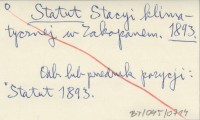 Statut Stacyi klima-
tycznej w Zakopanem. 1893.
Odb. lub przedruk pozycji:
*Statut 1893.